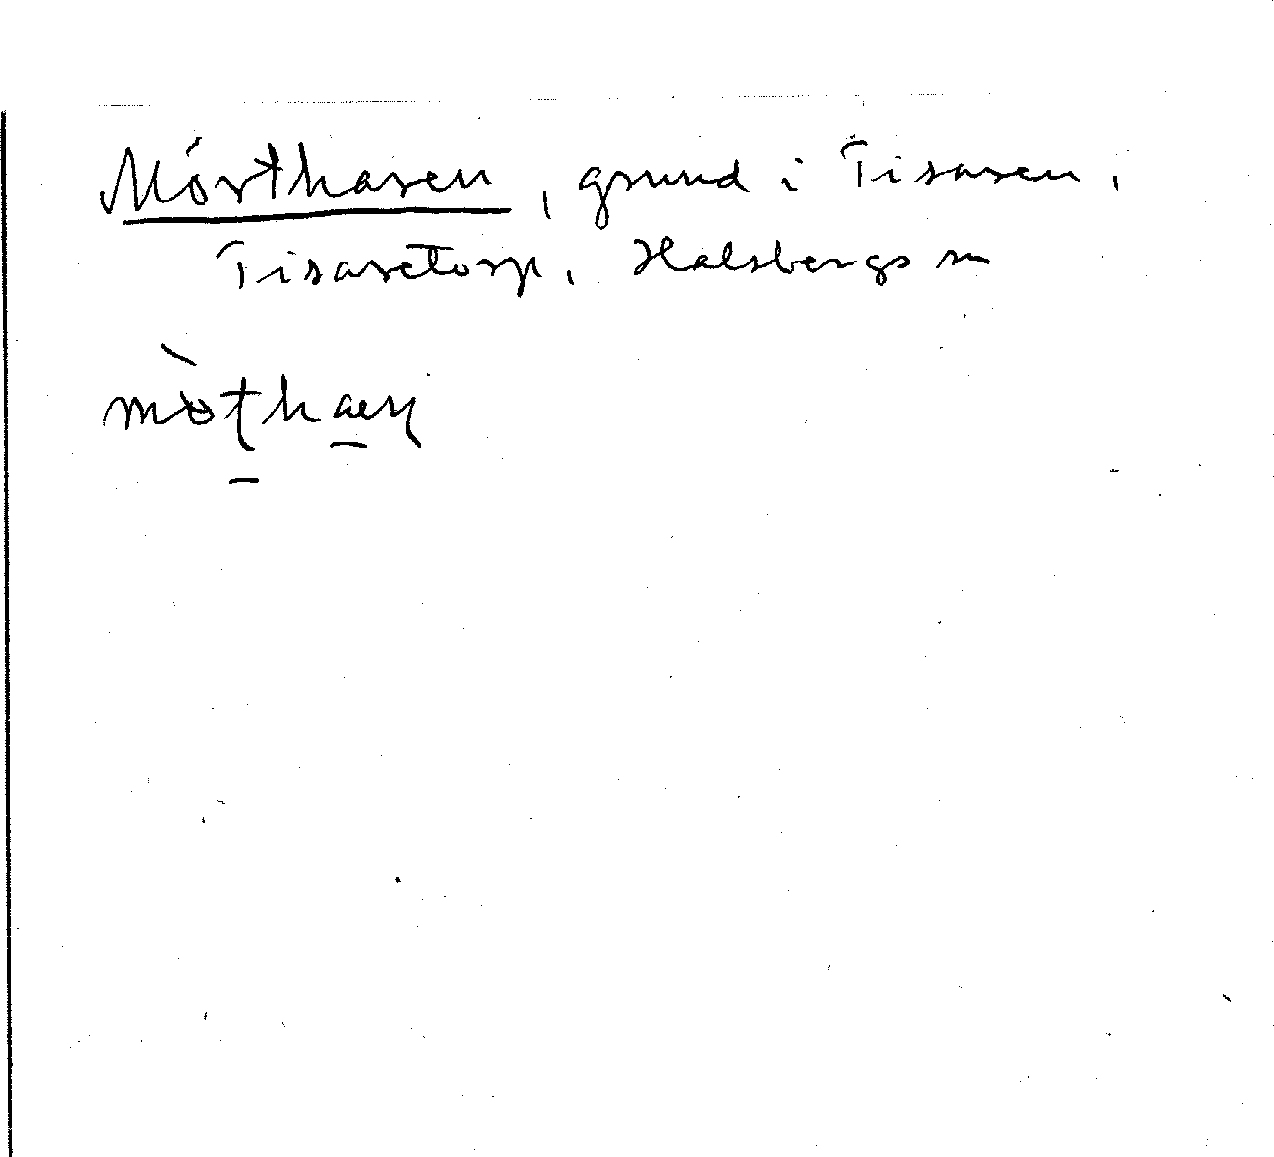 Mörtharen, grund i Tisaren,
Tisaretorp, Halsbergs sn